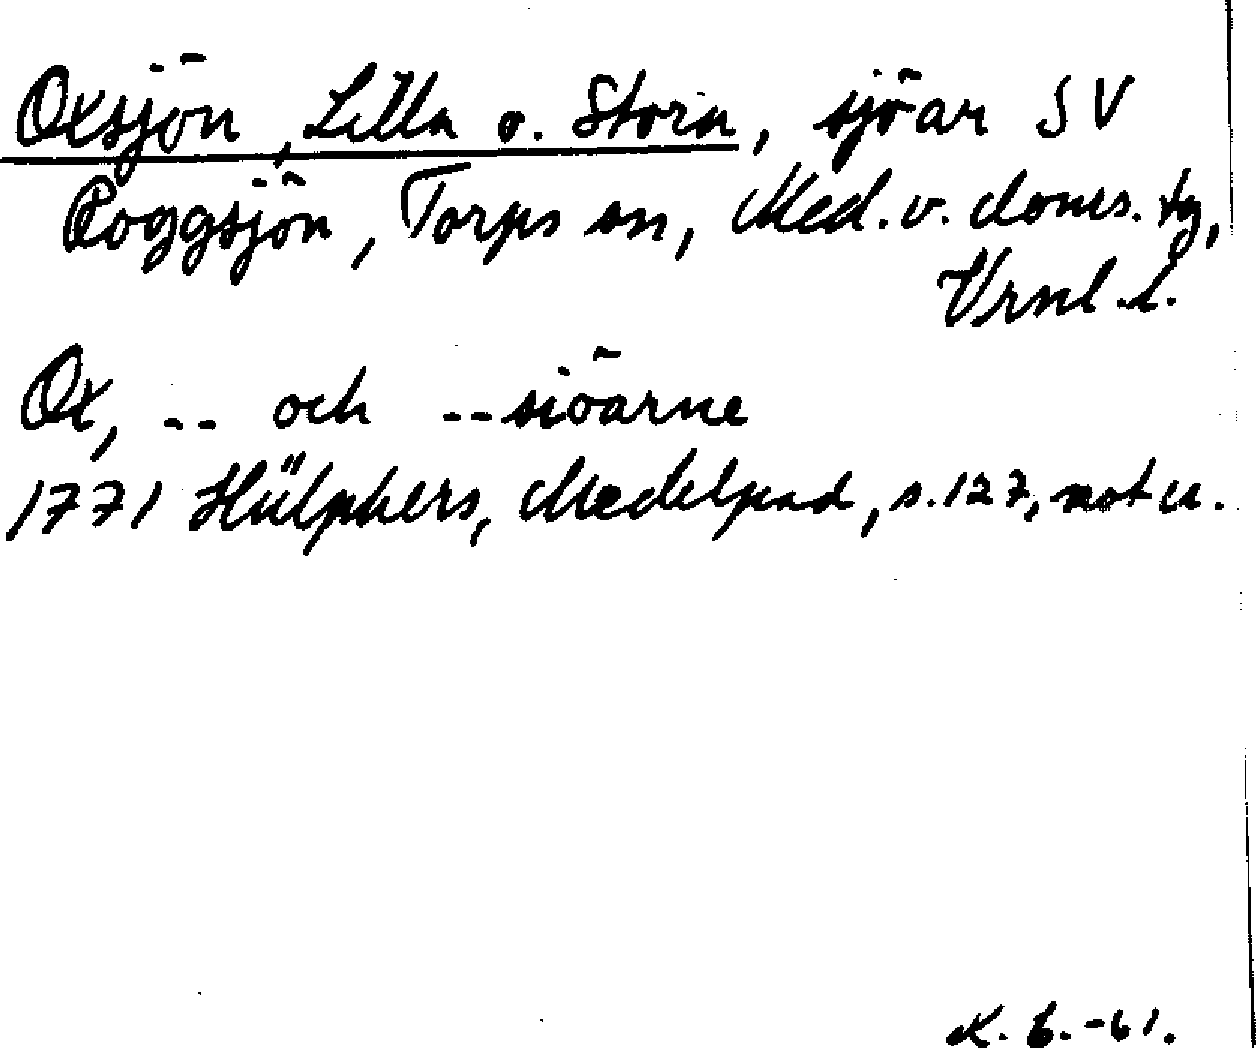 Oxsjön, Lilla o. Stora, sjöar SV
Roggsjön, Torps sn, Med. v. doms. tg,
Vrnl. l.
Ox, -- och --siöarne
1771 Hülphers, Medelpad, s. 127, not u.
K. G. -61.